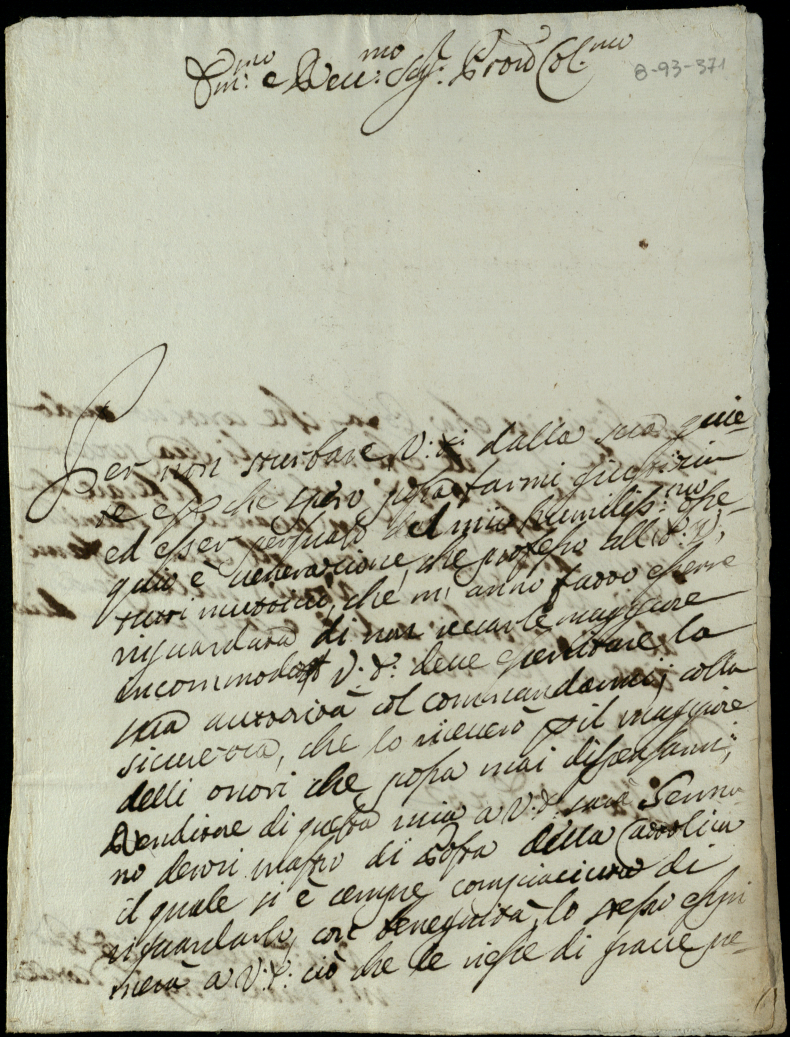 Ill.mo e Rev.mo Sig.r Pron Col.mo
8-93-371
Per non sturbare V: S: dalla sua quie-
te e che spero potra farmi giustizia
ed esser persuaso del mio humiliss:mo osse-
quio è venerazione, che professo all V: S:
tutti motivi, che m' anno fatto essere
riguardata di non recarle maggiore
incommodo V: S: deve esercitare la
sua autorità col commandarmi, colla
sicurezza, che lo riceverò p il maggiore
delli onori che possa mai dispensarmi;
Renditore di questa mia a V: S: sarà Genna-
no mastro di Posta della Cattolica
il quale si è sempre compiaciuta di
riguardarlo con benegnità, lo stesso espri
merà a V: S: ciò che le riesce di grave pe-